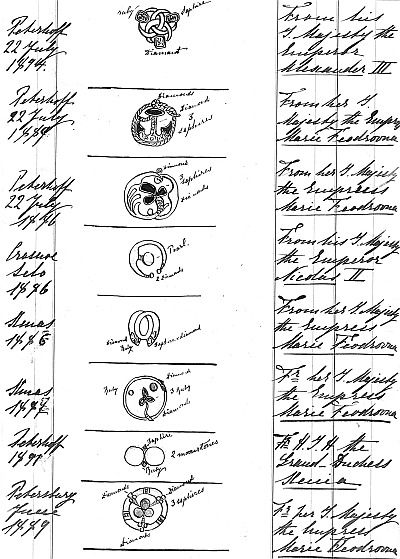 Peterhoff
22 July
1894.
ruby
Sapphire
Diamant
From his
I. Majesty the
Emperor
Alexander III
Peterhoff
22 July
Diamonds
Diamond
3
sapheres
From her I.
Majesty the Empress
Marie Feodrovna
Peterhoff
22 July
1886
diamond
3
sapheres
From her I. Majesty
the Empress
Marie Feodrovna
Selo
1886
Pearl.
2 diamonds
From his I. Majesty
the Emperor
Nicolas II
1886
diamond
Ruby
From her I. Majesty
the Empress
Marie Feodrovna
Ruby
diamond
3 Ruby
diamonds
Fr her I. Majesty
the Empress
Marie Feodrovna
Peterhoff
Saphire
2 moonstones
Fr H. I. H. the
Grand Duchess
Petersburg
1889
Diamonds
Diamant
3 sapheres
Diamonds
Fr her I. Majesty
the Empress
Marie Feodrovna